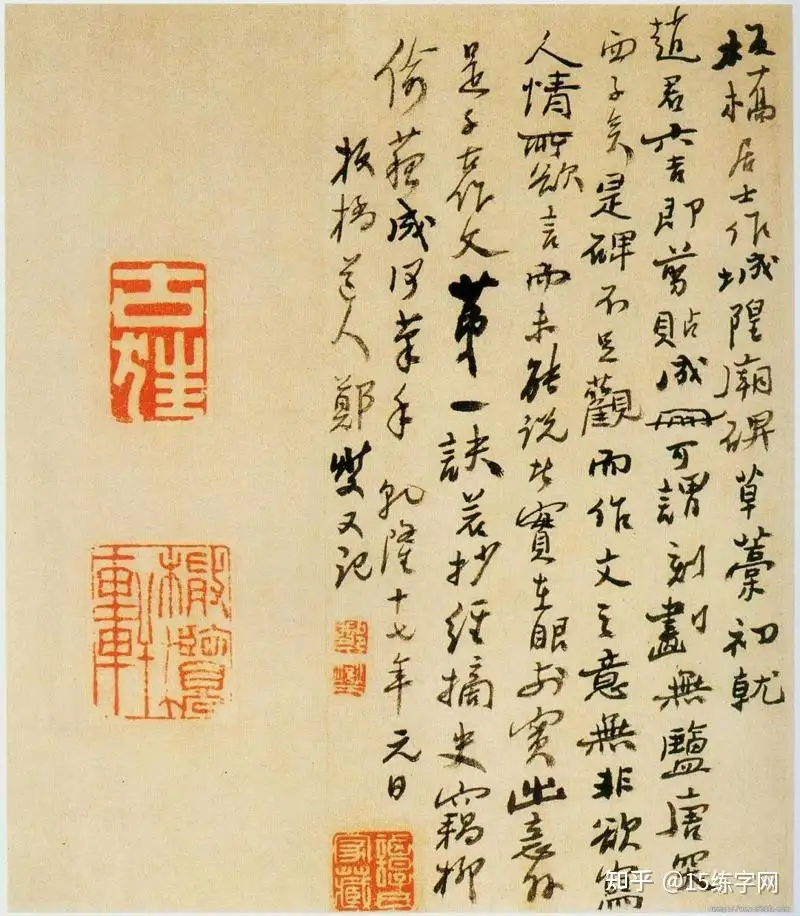 板橋居士作城隍廟碑草藁初就
趙君六吉即剪貼成冊可謂刻劃無鹽唐突
西子矣是碑不足觀而作文之意無非欲寫
人情所欲言而未能說此實在眼前實出意外
是千古作文第一訣若抄經摘史竊柳
偷蘇成何筆手乾隆十七年元日
板橋道人鄭燮又記
知乎 @15练字网